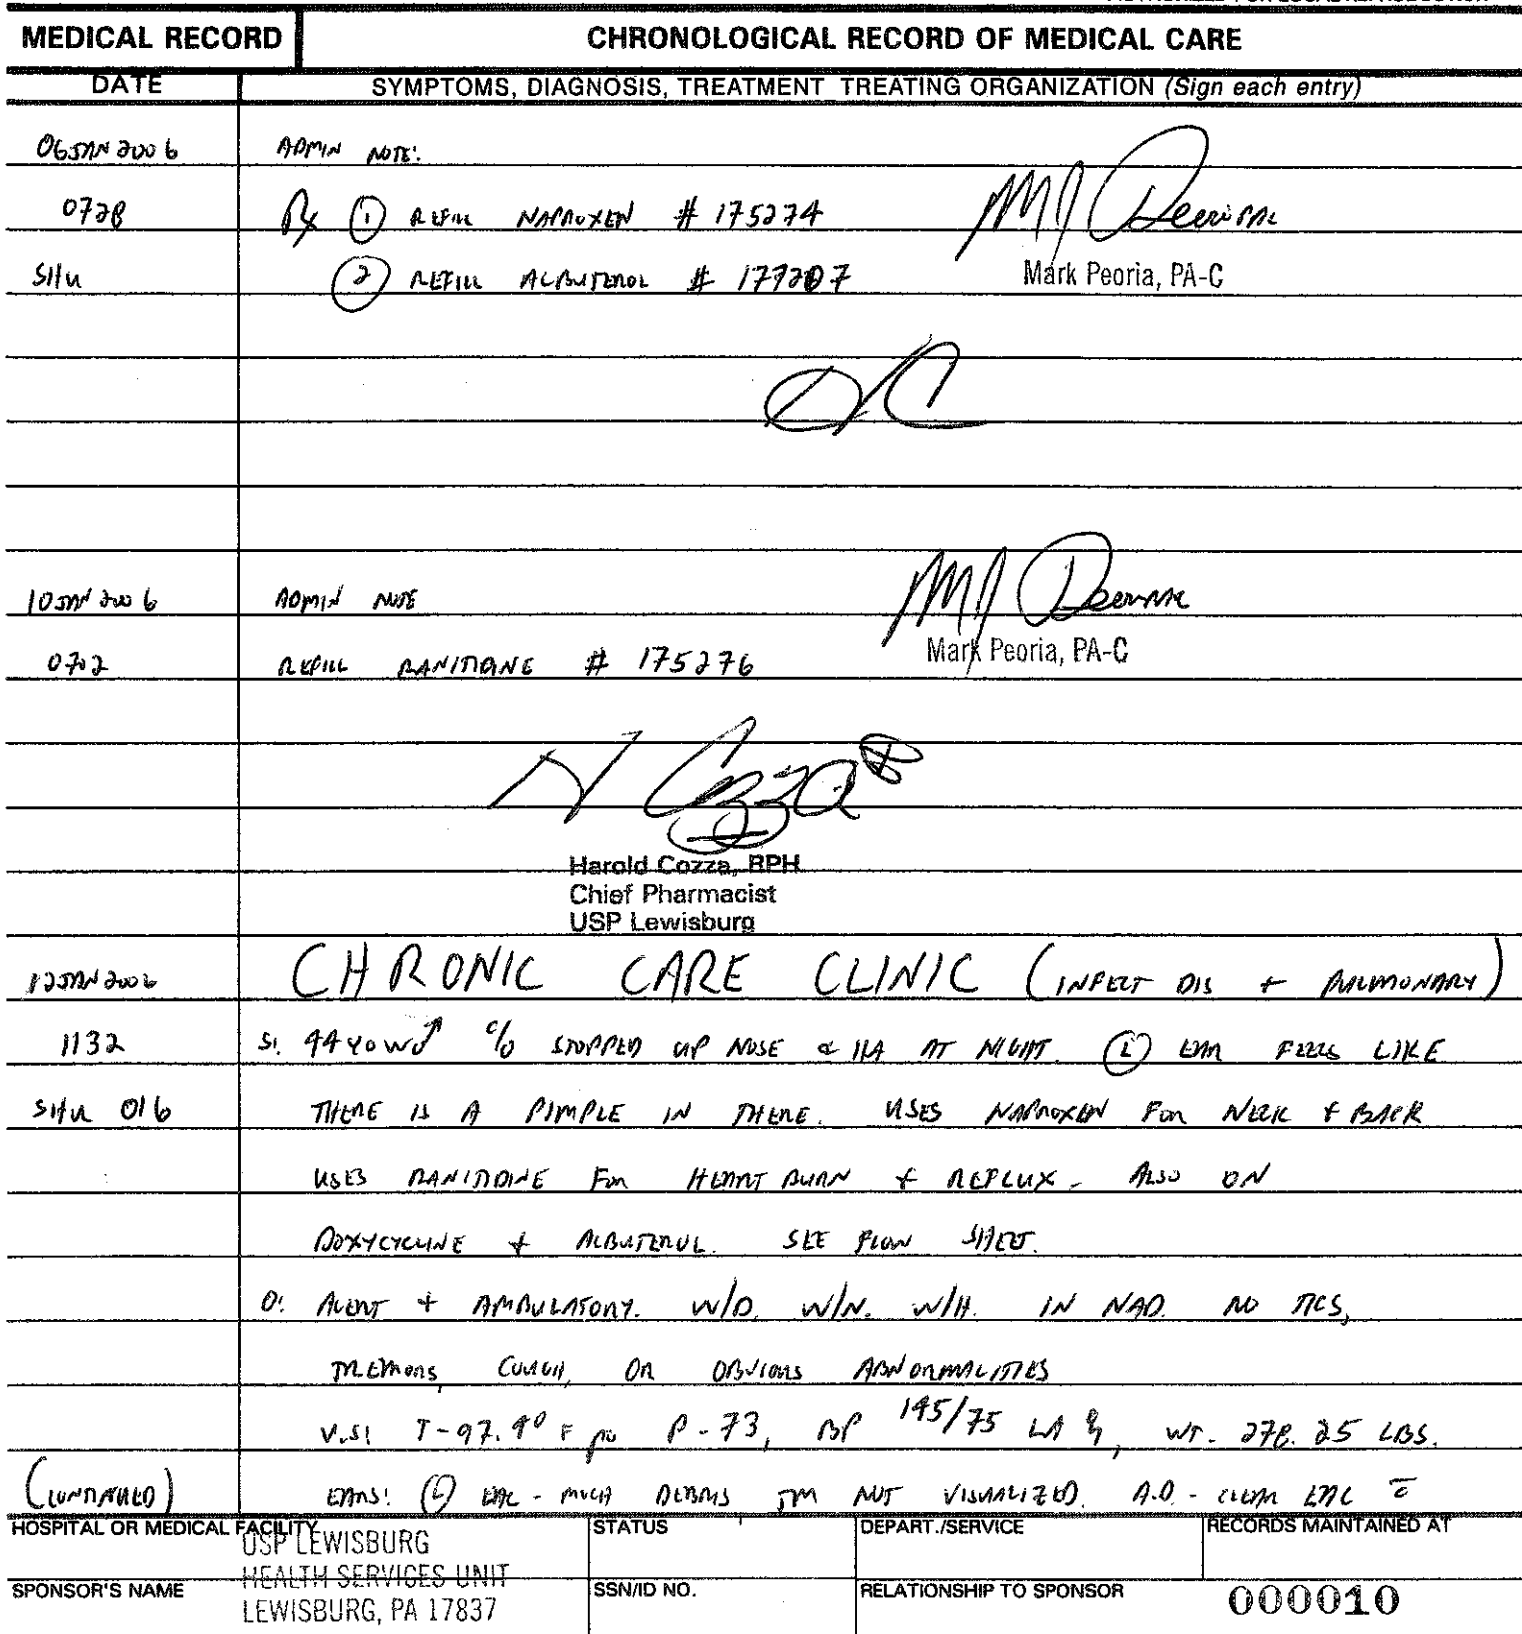 MEDICAL RECORD
CHRONOLOGICAL RECORD OF MEDICAL CARE
DATE
SYMPTOMS, DIAGNOSIS, TREATMENT TREATING ORGANIZATION (Sign each entry)
06 JAN 2006 ADMIN NOTE:
0728 Rx ① REFILL NAPROXEN # 175274
Mark Peoria, PA-C
SHU ② REFILL ALBUTEROL # 177207
10 JAN 2006 ADMIN NOTE
Mark Peoria, PA-C
0702 REFILL RANITIDINE # 175276
H Cozza
Harold Cozza, RPH
Chief Pharmacist
USP Lewisburg
12 JAN 2006 CHRONIC CARE CLINIC (INFECT DIS + PULMONARY)
1132 S: 44 YO W♂ c/o STOPPED UP NOSE & HA AT NIGHT. Ⓛ EAR FEELS LIKE
SHU 016 THERE IS A PIMPLE IN THERE. USES NAPROXEN FOR NECK & BACK
USES RANITIDINE FOR HEART BURN & REFLUX. ALSO ON
DOXYCYCLINE + ALBUTEROL. SEE FLOW SHEET.
O: ALERT + AMBULATORY. W/D. W/N. W/H. IN NAD. NO TICS,
TREMORS, COUGH, OR OBVIOUS ABNORMALITIES
V.S: T-97.4° F po P-73, BP 145/75 LA, WT- 278.25 LBS.
(CONTINUED) EARS: Ⓛ EAC - MUCH DEBRIS TM NOT VISUALIZED. A.D. - CLEAR EAC c̄
HOSPITAL OR MEDICAL FACILITY
USP LEWISBURG
HEALTH SERVICES UNIT
LEWISBURG, PA 17837
STATUS
DEPART./SERVICE
RECORDS MAINTAINED AT
SPONSOR'S NAME
SSN/ID NO.
RELATIONSHIP TO SPONSOR
000010